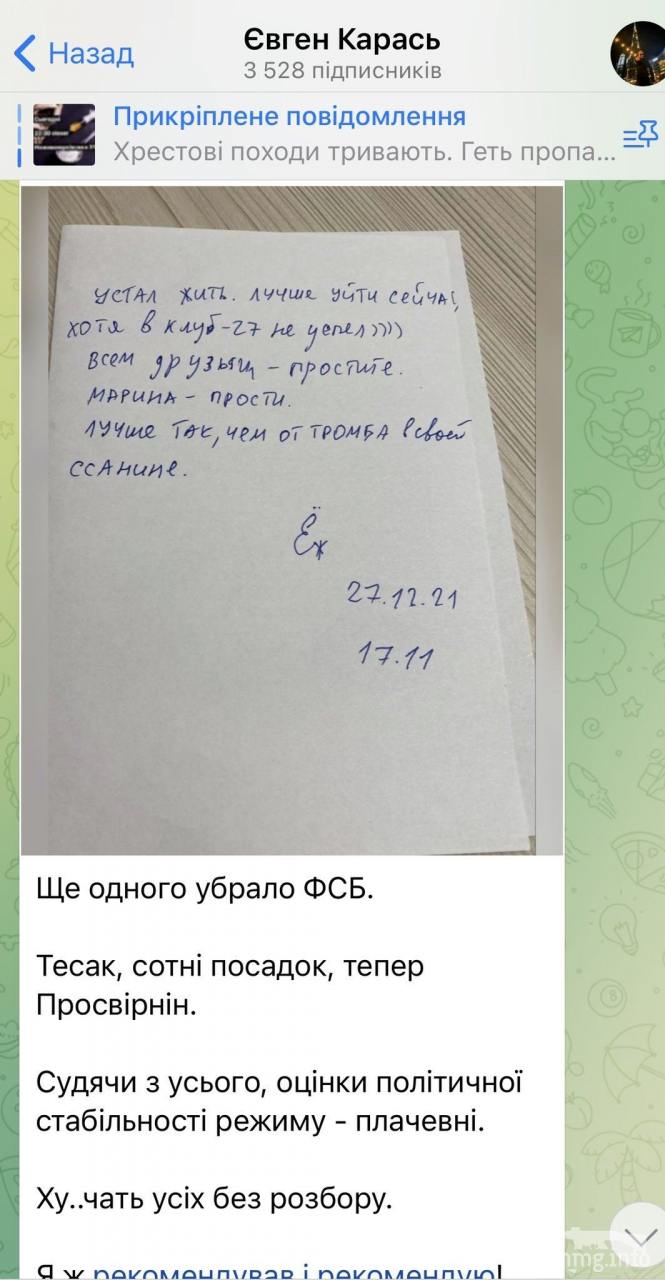 Назад
Євген Карась
3 528 підписників
Прикріплене повідомлення
Хрестові походи тривають. Геть пропа...
УСТАЛ ЖИТЬ. ЛУЧШЕ УЙТИ СЕЙЧАС,
ХОТЯ В КЛУБ-27 НЕ УСПЕЛ))))
ВСЕМ ДРУЗЬЯМ - ПРОСТИТЕ.
МАРИНА - ПРОСТИ.
ЛУЧШЕ ТАК, ЧЕМ ОТ ТРОМБА В СВОЕЙ
ССАНИНЕ.
Ёж
27.12.21
17.11
Ще одного убрало ФСБ.
Тесак, сотні посадок, тепер
Просвірнін.
Судячи з усього, оцінки політичної
стабільності режиму - плачевні.
Ху..чать усіх без розбору.
Я ж рекомендував і рекомендую!